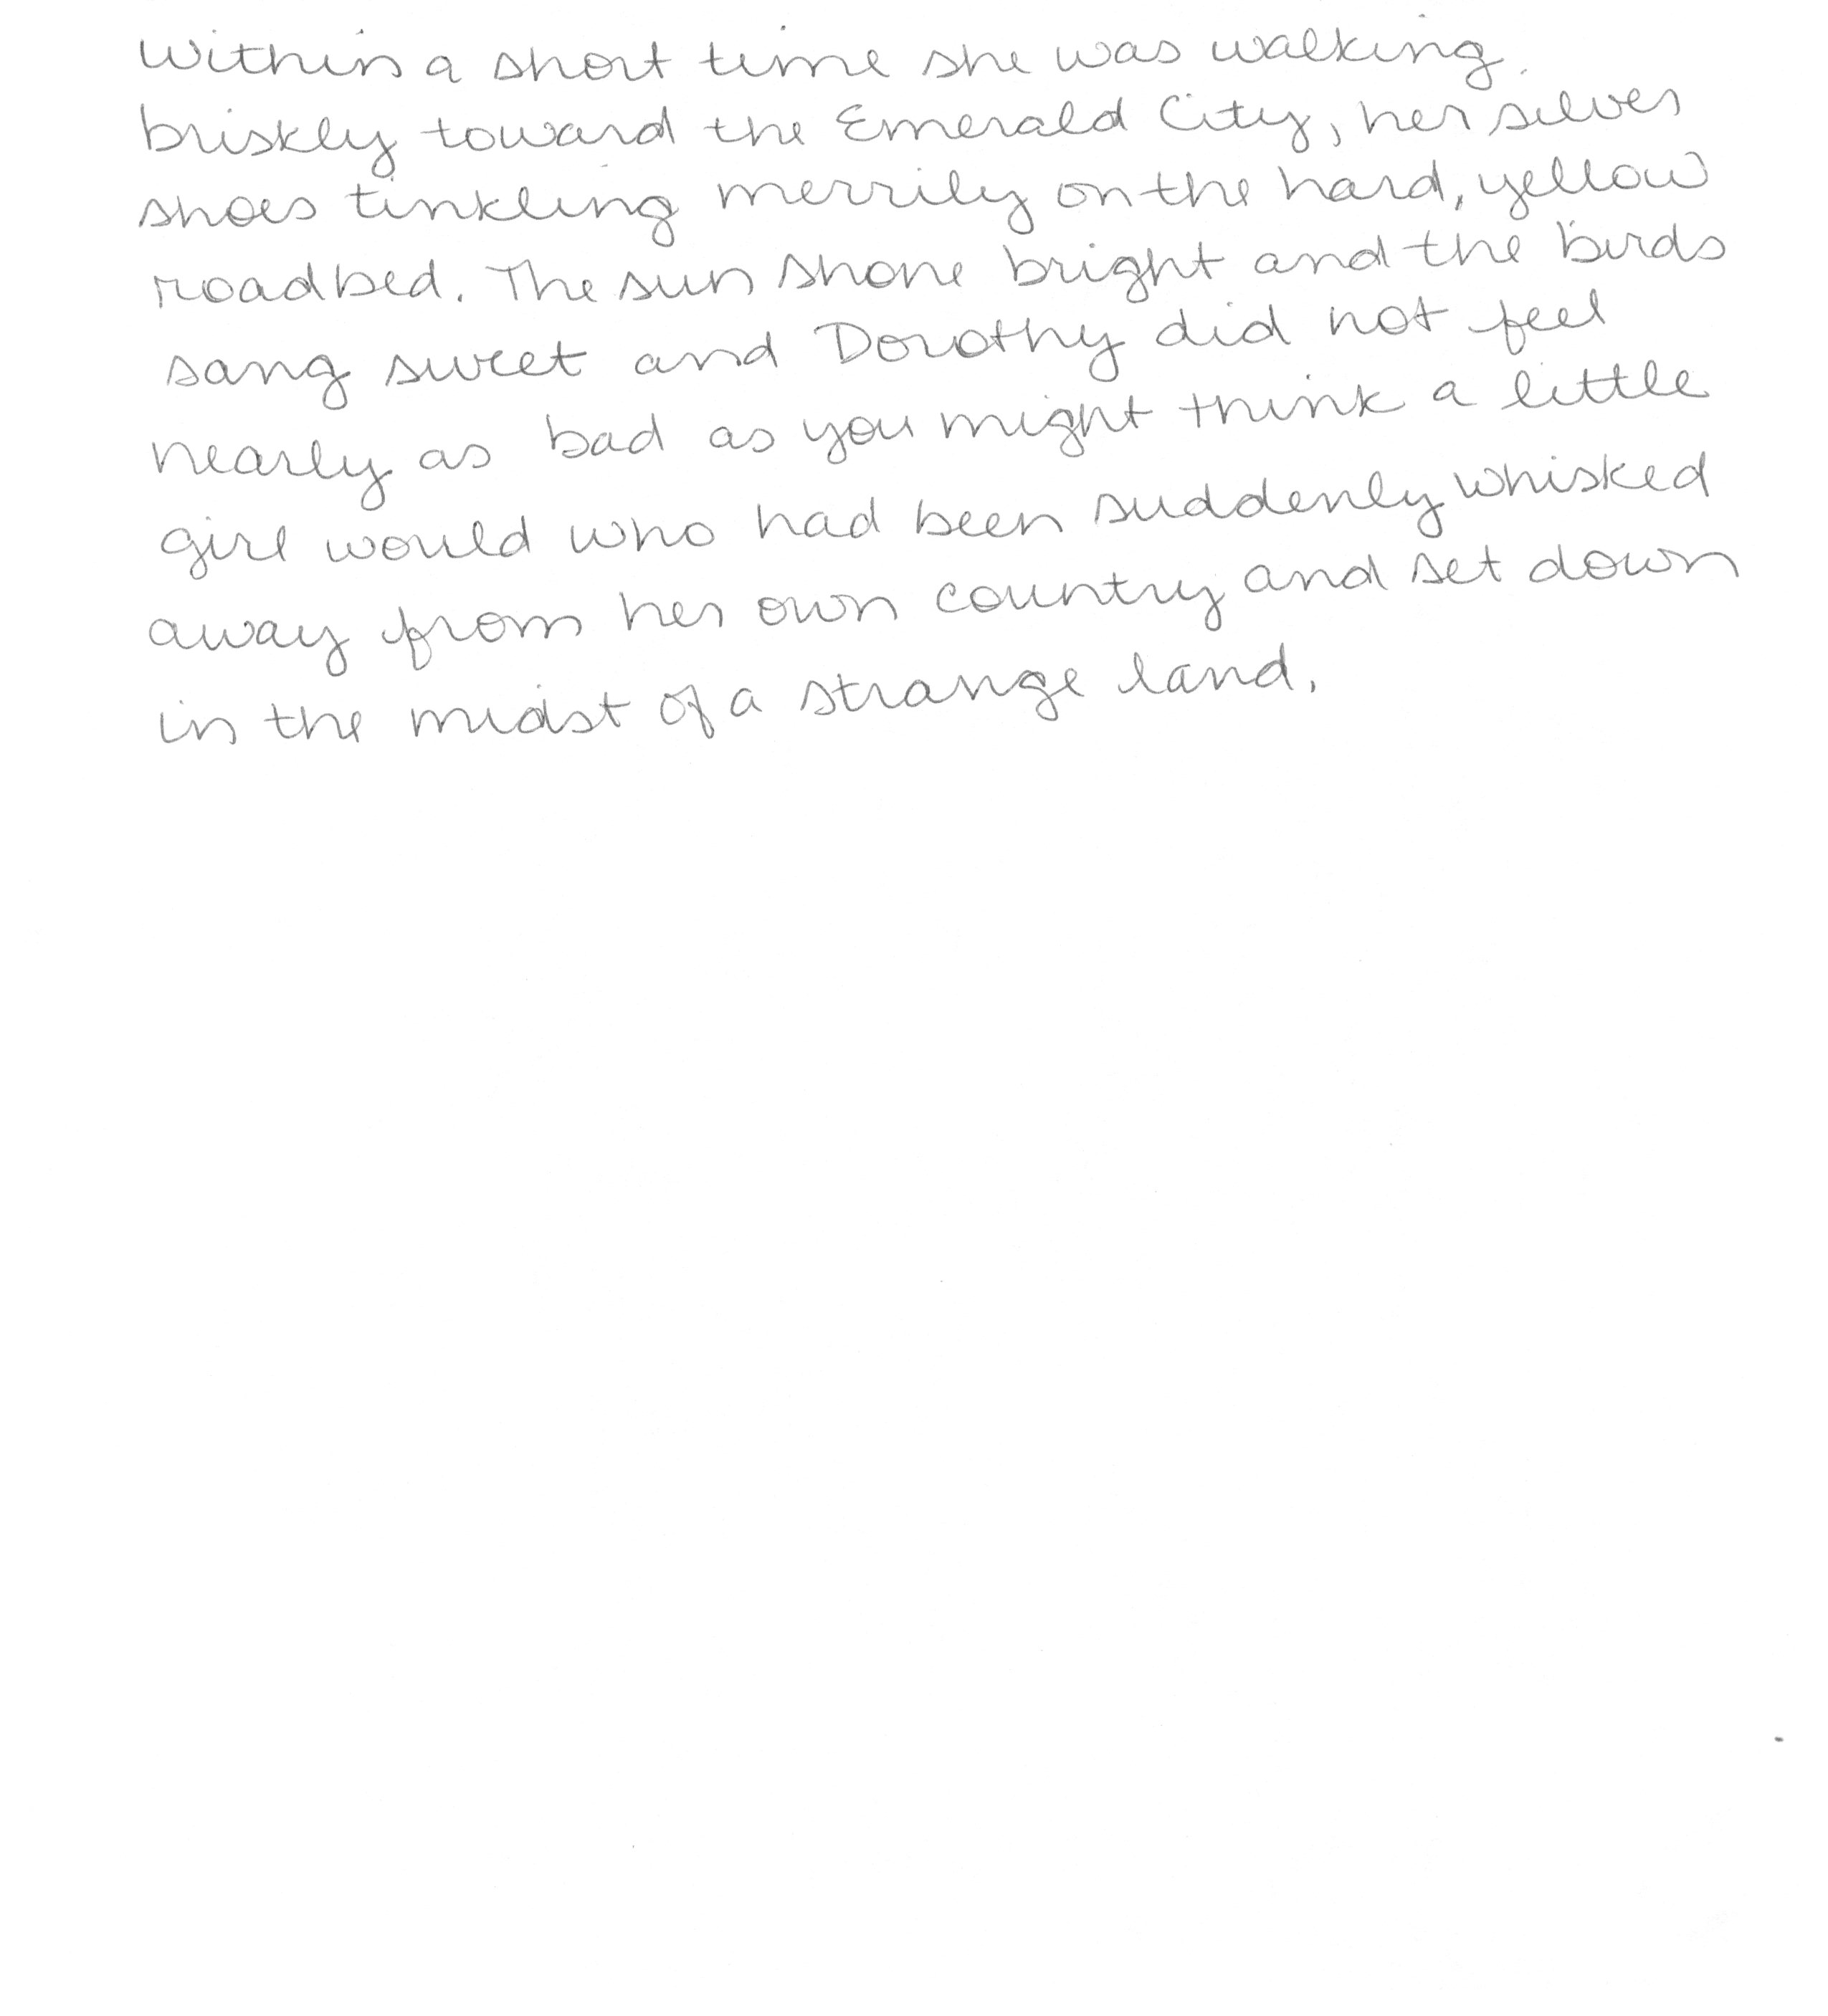 Within a short time she was walking
briskly toward the Emerald City, her silver
shoes tinkling merrily on the hard, yellow
roadbed. The sun shone bright and the birds
sang sweet and Dorothy did not feel
nearly as bad as you might think a little
girl would who had been suddenly whisked
away from her own country and set down
in the midst of a strange land.